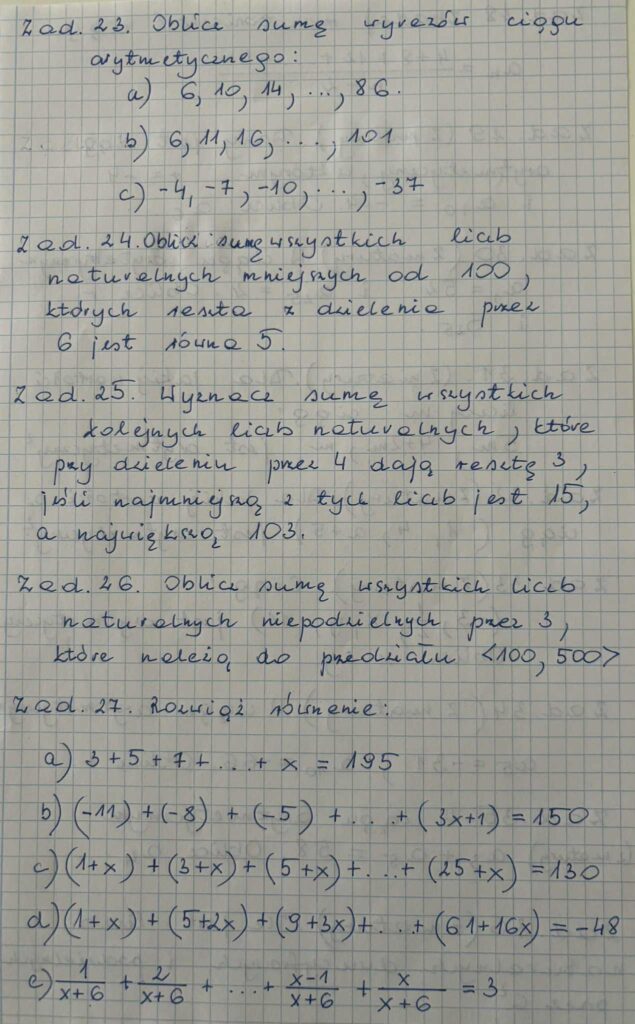 Zad. 23. Oblicz sumę wyrazów ciągu
arytmetycznego:
a) 6, 10, 14, ..., 86.
b) 6, 11, 16, ..., 101
c) -4, -7, -10, ..., -37
Zad. 24. Oblicz sumę wszystkich liczb
naturalnych mniejszych od 100,
których reszta z dzielenia przez
6 jest równa 5.
Zad. 25. Wyznacz sumę wszystkich
kolejnych liczb naturalnych, które
przy dzieleniu przez 4 dają resztę 3,
jeśli najmniejszą z tych liczb jest 15,
a największą 103.
Zad. 26. Oblicz sumę wszystkich liczb
naturalnych niepodzielnych przez 3,
które należą do przedziału <100, 500>
Zad. 27. Rozwiąż równanie:
a) 3 + 5 + 7 + ... + x = 195
b) (-11) + (-8) + (-5) + ... + (3x+1) = 150
c) (1+x) + (3+x) + (5+x) + ... + (25+x) = 130
d) (1+x) + (5+2x) + (9+3x) + ... + (61+16x) = -48
e) 1/(x+6) + 2/(x+6) + ... + (x-1)/(x+6) + x/(x+6) = 3